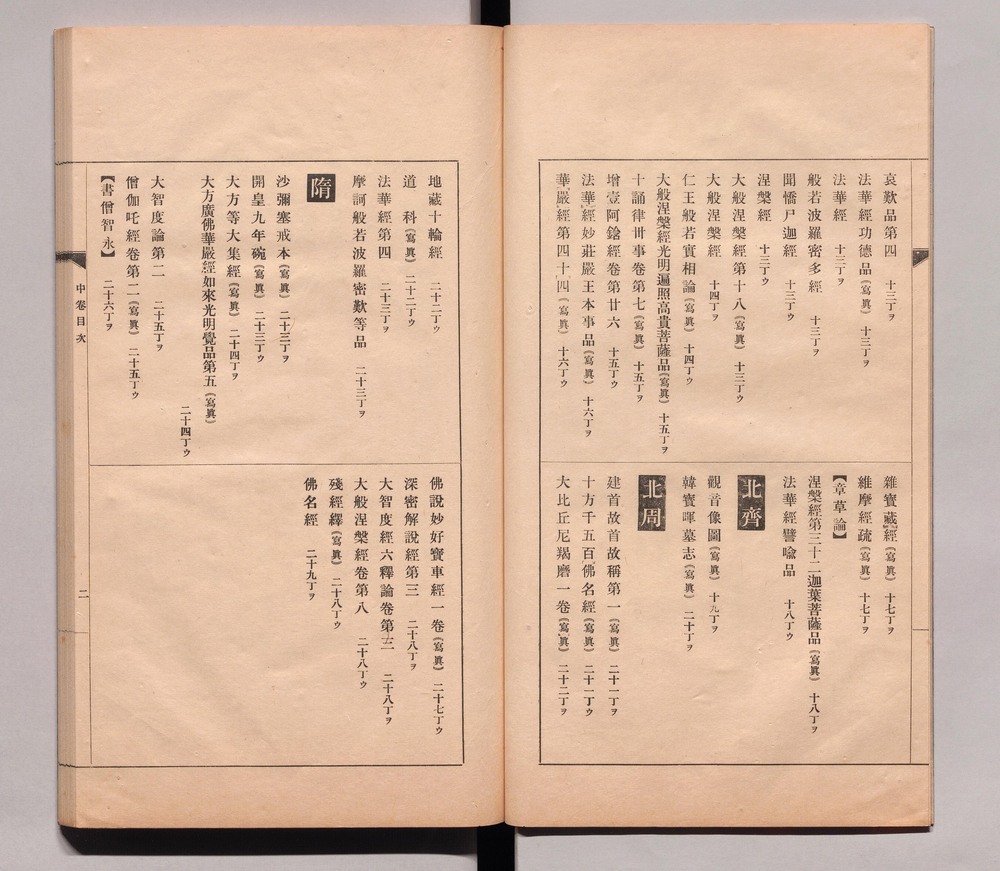 哀歎品第四　十三丁ヲ
法華經功德品（寫眞）　十三丁ヲ
法華經　十三丁ヲ
般若波羅密多經　十三丁ヲ
聞憍尸迦經　十三丁ウ
涅槃經　十三丁ウ
大般涅槃經第十八（寫眞）　十三丁ウ
大般涅槃經　十四丁ヲ
仁王般若實相論（寫眞）　十四丁ウ
大般涅槃經光明遍照高貴菩薩品（寫眞）　十五丁ヲ
十誦律卌事卷第七（寫眞）　十五丁ヲ
增壹阿鋡經卷第廿六　十五丁ウ
法華經妙莊嚴王本事品（寫眞）　十六丁ヲ
華嚴經第四十四（寫眞）　十六丁ウ
雜寶藏經（寫眞）　十七丁ヲ
維摩經疏（寫眞）　十七丁ヲ
【章草論】
涅槃經第三十二迦葉菩薩品（寫眞）　十八丁ヲ
法華經譬喩品　十八丁ウ
北齊
觀音像圖（寫眞）　十九丁ヲ
韓寶暉墓志（寫眞）　二十丁ヲ
北周
建首故首故稱第一（寫眞）　二十一丁ヲ
十方千五百佛名經（寫眞）　二十一丁ウ
大比丘尼羯磨一卷（寫眞）　二十二丁ヲ
地藏十輪經　二十二丁ウ
道　科（寫眞）　二十二丁ウ
法華經第四　二十三丁ヲ
摩訶般若波羅密歎等品　二十三丁ヲ
隋
沙彌塞戒本（寫眞）　二十三丁ヲ
開皇九年碗（寫眞）　二十三丁ウ
大方等大集經（寫眞）　二十四丁ヲ
大方廣佛華嚴經如來光明覺品第五（寫眞）
二十四丁ウ
大智度論第二　二十五丁ヲ
僧伽吒經卷第二（寫眞）　二十五丁ウ
【書僧智永】　二十六丁ヲ
佛說妙好寶車經一卷（寫眞）　二十七丁ウ
深密解說經第三　二十八丁ヲ
大智度經六釋論卷第三　二十八丁ヲ
大般涅槃經卷第八　二十八丁ウ
殘經繹（寫眞）　二十八丁ウ
佛名經　二十九丁ヲ
中卷目次
二